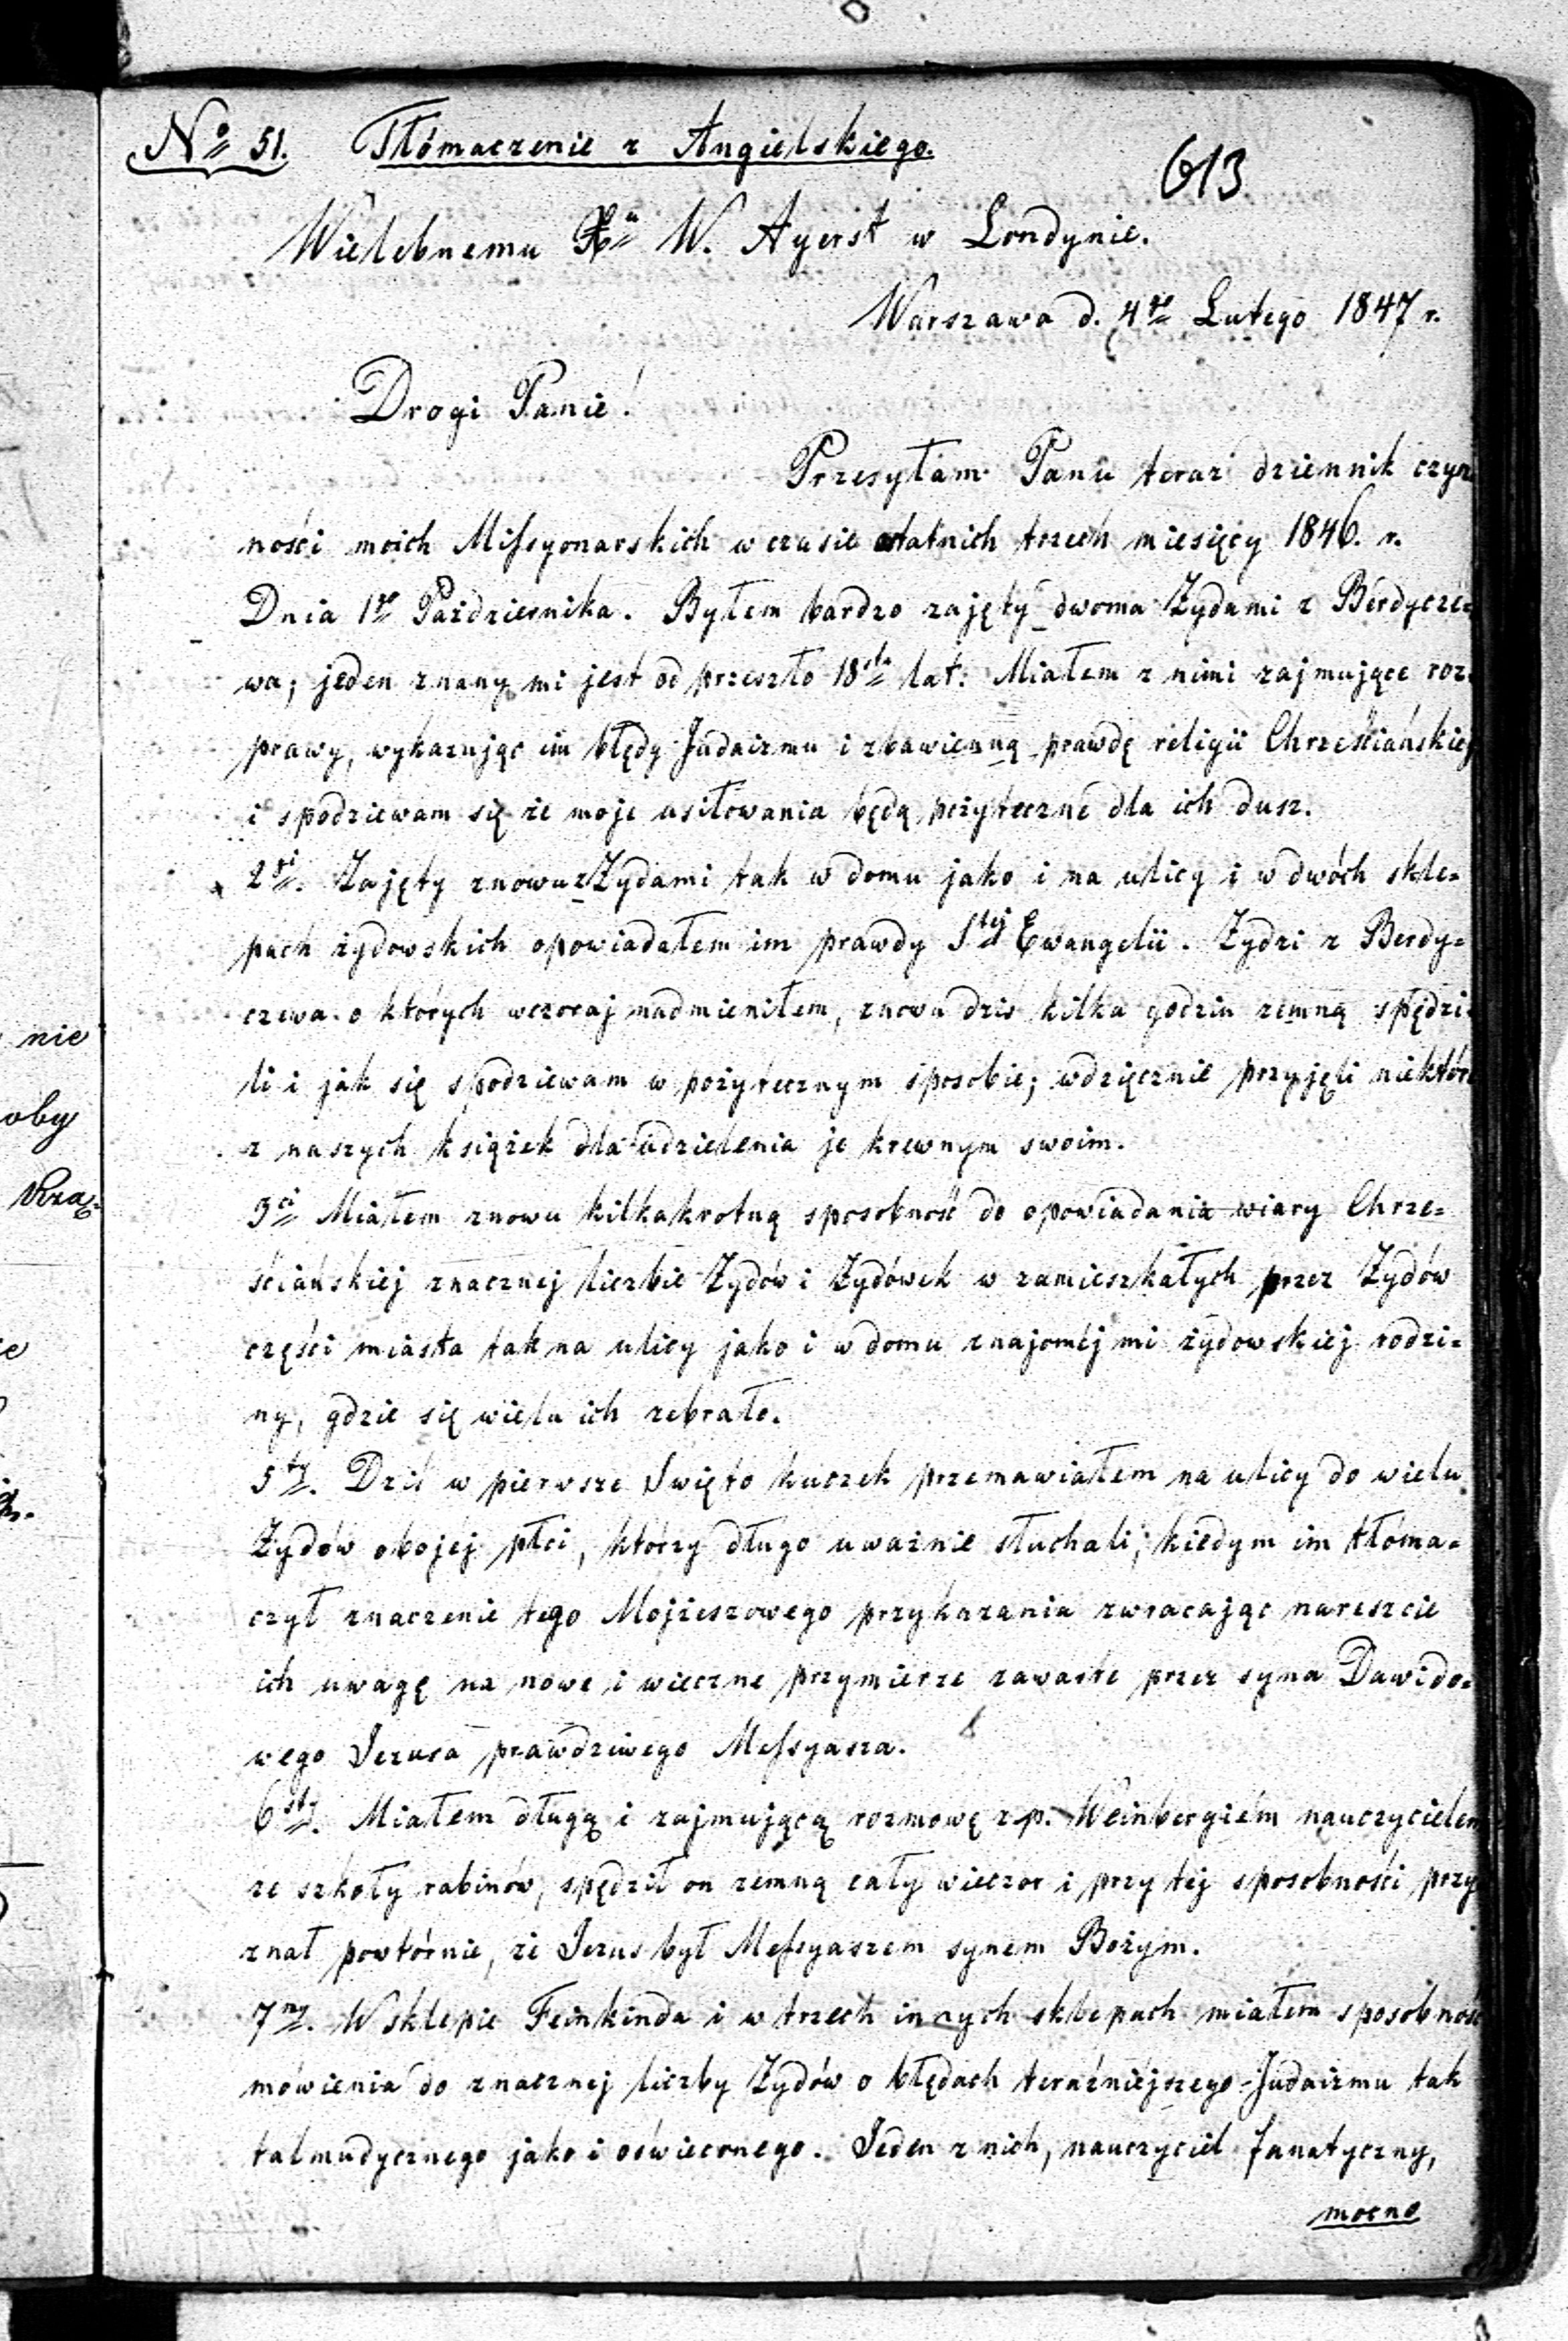 No 51. Tłómaczenie z Angielskiego.
613
Wielebnemu Xu W. Ayerst w Londynie.
Warszawa d. 4go Lutego 1847 r.
Drogi Panie!
Przesyłam Panu teraz dziennik czyn
ności moich Missyonarskich w czasie ostatnich trzech miesięcy 1846. r.
Dnia 1go Października. Byłem bardzo zajęty dwoma Żydami z Berdycze=
wa; jeden znany mi jest od przeszło 18stu lat. Miałem z nimi zajmujące roz=
prawy, wykazując im błędy Judaizmu i zbawienną prawdę religii Chrześciańskiej
i spodziewam się że moje usiłowania będą pożyteczne dla ich dusz.
2gi. Zajęty znowu z Żydami tak w domu jako i na ulicy i w dwóch skle=
pach żydowskich opowiadałem im prawdy Stej Ewangelii. Żydzi z Berdy=
czewa o których wczoraj nadmieniłem, znowu dziś kilka godzin zemną spędzi=
li i jak się spodziewam w pożytecznym sposobie; wdzięcznie przyjęli niektóre
z naszych książek dla udzielenia je krewnym swoim.
3ci Miałem znowu kilkakrotną sposobność do opowiadania wiary Chrze=
ściańskiej znacznej liczbie Żydów i Żydówek w zamieszkałych przez Żydów
części miasta tak na ulicy jako i w domu znajomej mi żydowskiej rodzi=
ny, gdzie się wielu ich zebrało.
5ty. Dziś w pierwsze Święto kuczek przemawiałem na ulicy do wielu
Żydów obojej płci, którzy długo uważnie słuchali; kiedym im tłóma=
czył znaczenie tego Mojżeszowego przykazania zwracając nareszcie
ich uwagę na nowe i wieczne przymierze zawarte przez syna Dawido=
wego Jezusa prawdziwego Messyasza.
6sty. Miałem długą i zajmującą rozmowę z p. Weinbergiem nauczycielem
ze szkoły rabinów, spędził on zemną cały wieczor i przy tej sposobności przy
znał powtórnie, że Jezus był Messyaszem synem Bożym.
7my. W sklepie Feinkinda i w trzech innych sklepach miałem sposobność
mówienia do znacznej liczby Żydów o błędach teraźniejszego Judaizmu tak
talmudycznego jako i oświeconego. Jeden z nich, nauczyciel fanatyczny,
mocno
nie
oby